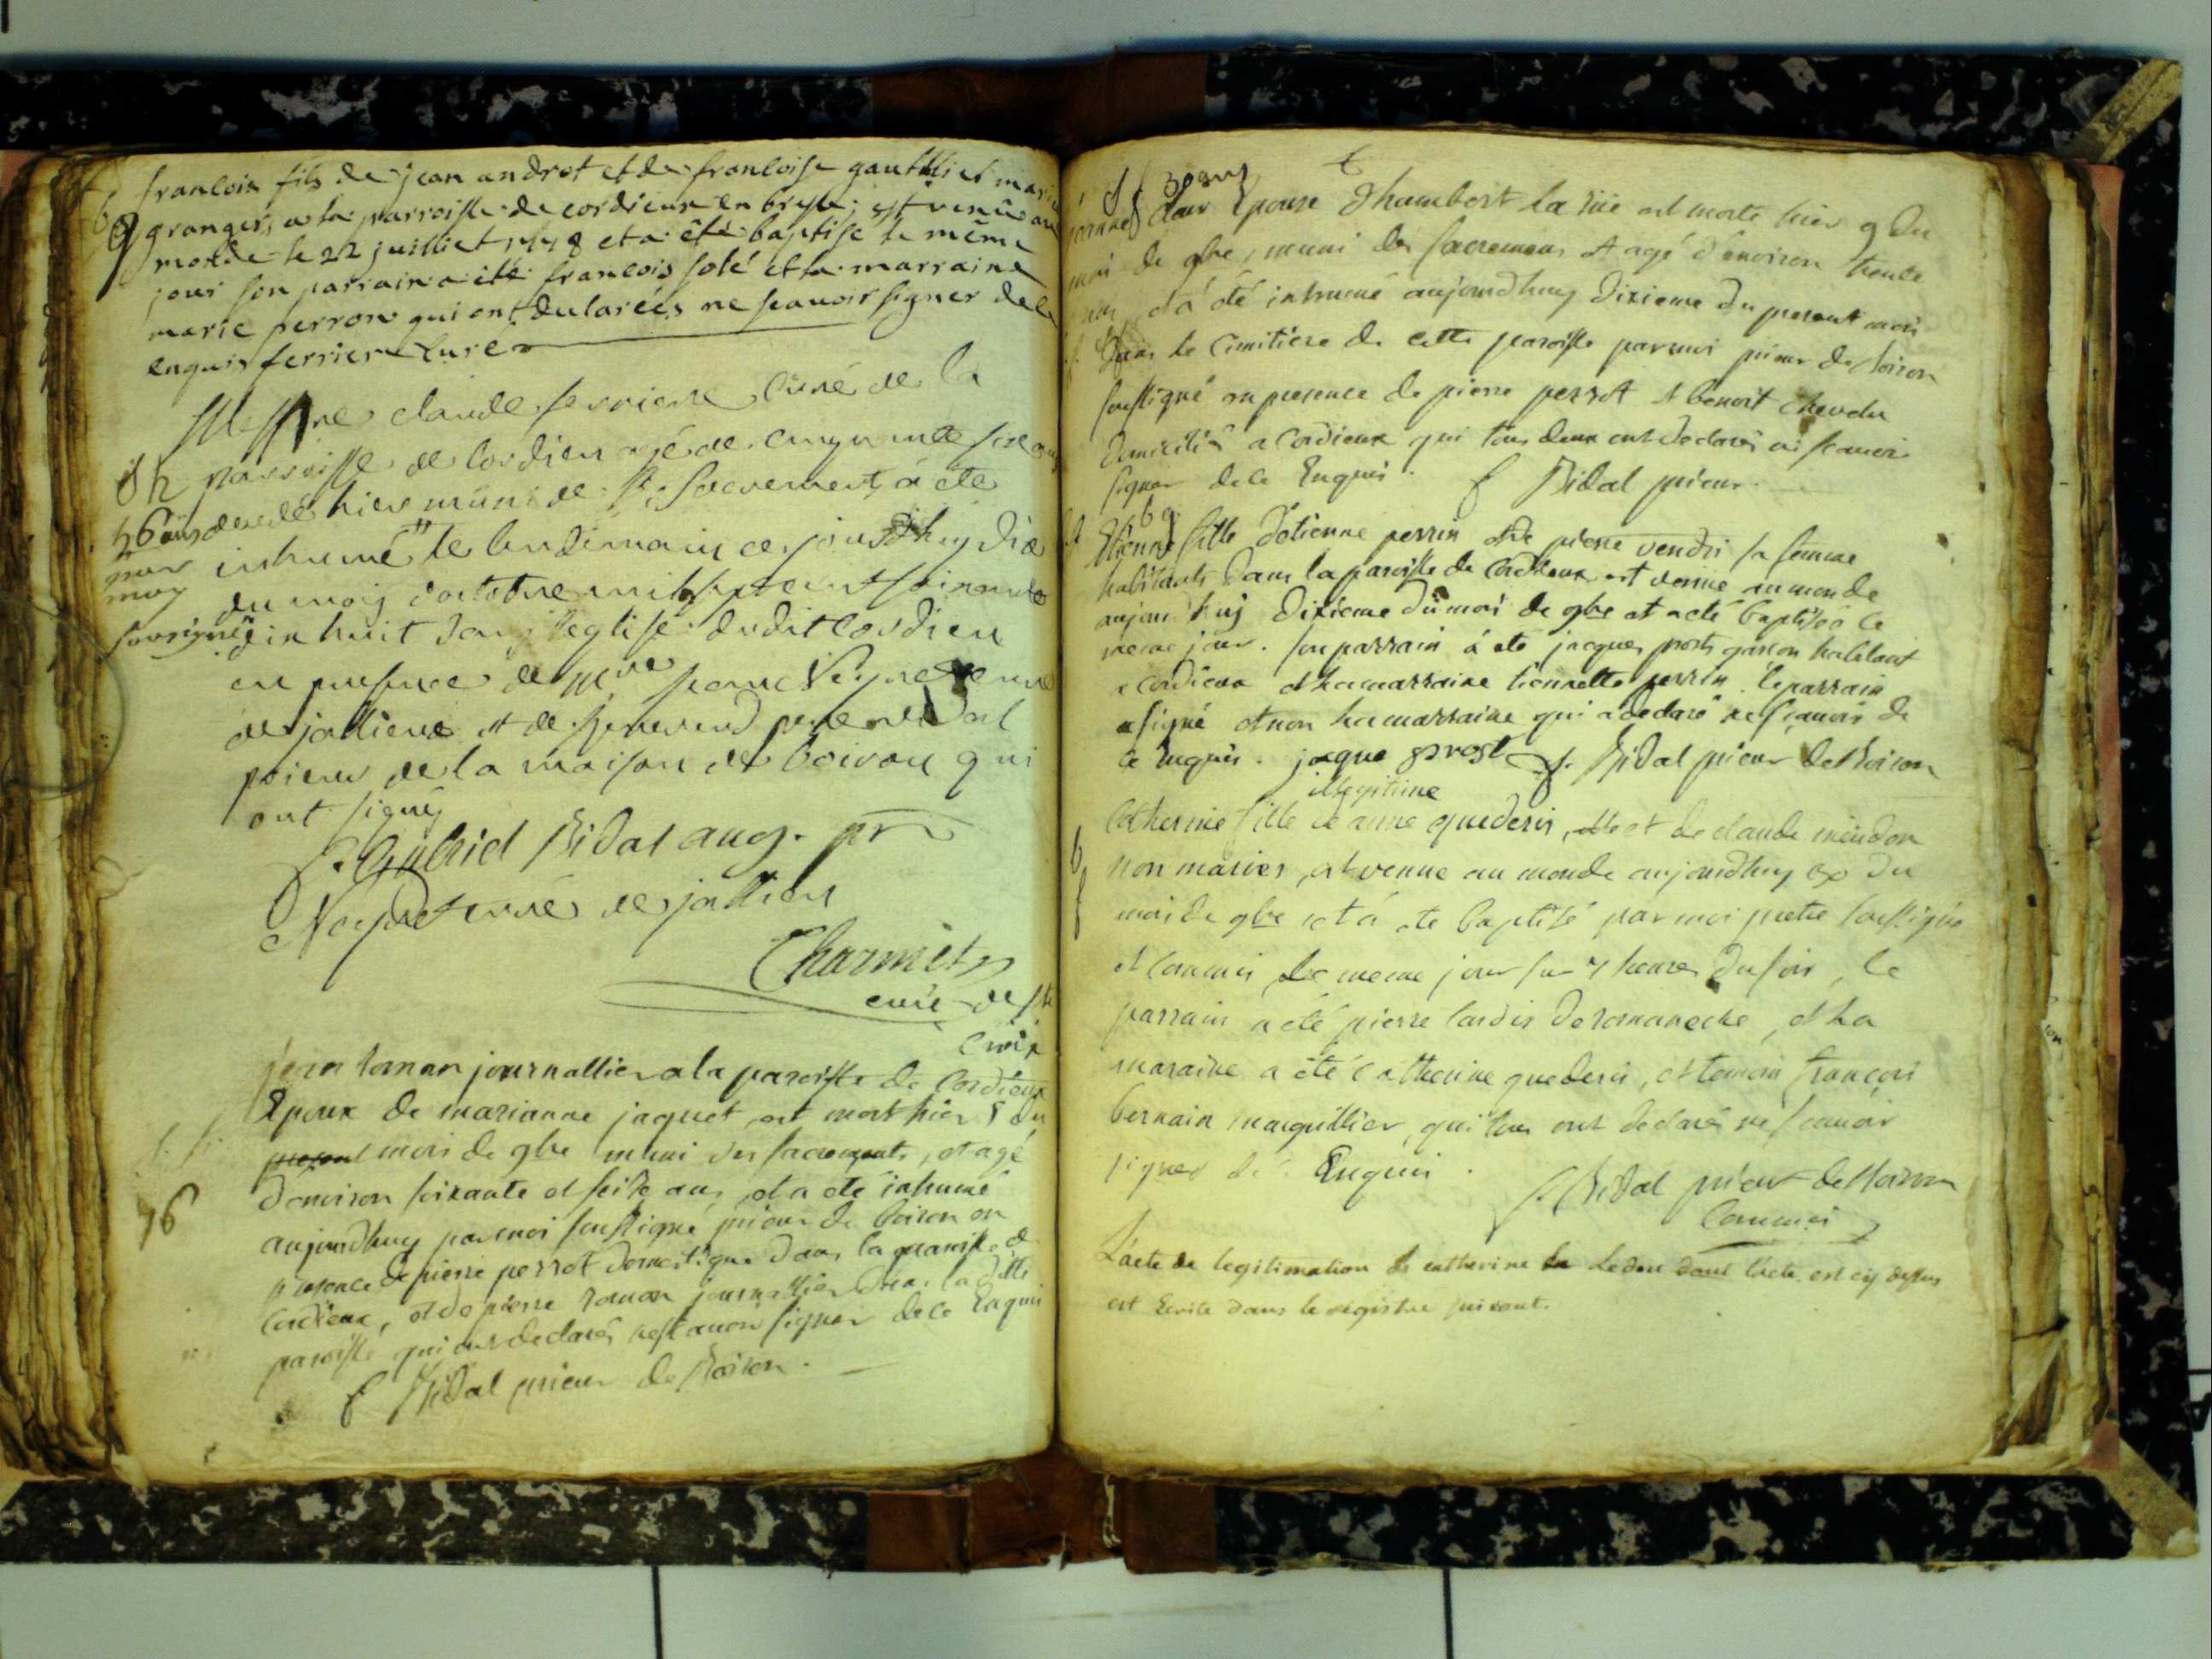 francois fils de jean androt et de francoise gauthier mari
granger a la parroisse de cordieux en bresse est venu au
monde le 22 juilliet et a été baptisé le même
jour son parrain a été francois solé et la marraine
marie perron qui ont declarées ne scauoir signer de ce
enquis ferriere curé
Messire claude ferriere curé de la
parroisse de Cordieu agé de cinquante six ans
56 ans decedé hier muni de sts sacrements a été
par moy soussigné
inhumé le lendemain ce jourdhuy dix
du mois d'octobre mil sept cent soixante
dix huit dans l'eglise dudit Cordieu
en presence de Mre curé
de jallieux et de Reverend pere vidal
prieur de la maison de boison qui
ont signés
f. Gabriel Vidal aug. pr
Neyret curé de jallieu
Charmet
curé de ste
Croix
jean roman journallier a la paroisse de Cordieux
Epoux de marianne jaquet est mort hier 8 du
present mois de 9bre muni des sacrements, et agé
d'environ soixante et seize ans, et a eté inhumé
76
aujourdhuy par moi soussigné prieur de boison en
presence de pierre perrot domestique dans la paroisse de
Cordieux, et de pierre roman journallier dans la ditte
paroisse qui ont declarés ne scauoir signer de ce Enquis
f Vidal prieur de Boison.
30 ans
Epouse d'humbert la rüe est morte hier 9 du
mois de 9bre, muni des sacremens et agé d'environ trente
ans, et a été inhumé aujourdhuy dixieme du present mois
dans le Cimitiere de cette paroisse par moi prieur de boison
soussigné en presence de pierre perrot et benoit chevalu
domicilié a Cordieux qui tous deux ont declarés ne scauoir
signer de ce Enquis. f Vidal prieur.
Etienne fille d'etienne perrin et de pierre vendri sa femme
habitants dans la paroisse de Cordieux est venue au monde
aujourdhuj dixieme du moi de 9bre et a eté baptisée le
meme jour. son parrain a eté jacques prost garcon habitant
a Cordieux et la marraine tiennette perrin. le parrain
a signé et non la marraine qui a declaré ne scauoir de
ce Enquis. jaque prost f. Vidal prieur de Boison
illegitime
Catherine fille de anne quederis, et de claude
non mariés, est venue au monde aujourdhuy du
mois de 9bre et a eté baptisé par moi pretre soussigné
et Commis le meme jour sur 7 heures du soir, le
parrain a eté pierre de romaneche, et la
maraine a été catherine quederis, et temoin françois
bernain marguillier, qui tous ont declarés ne scauoir
signer de ce Enquis.
f. Vidal prieur de Boison
Commis
L'acte de legitimation de catherine dont l'acte est cy dessus
est Ecrite dans le registre suivant.